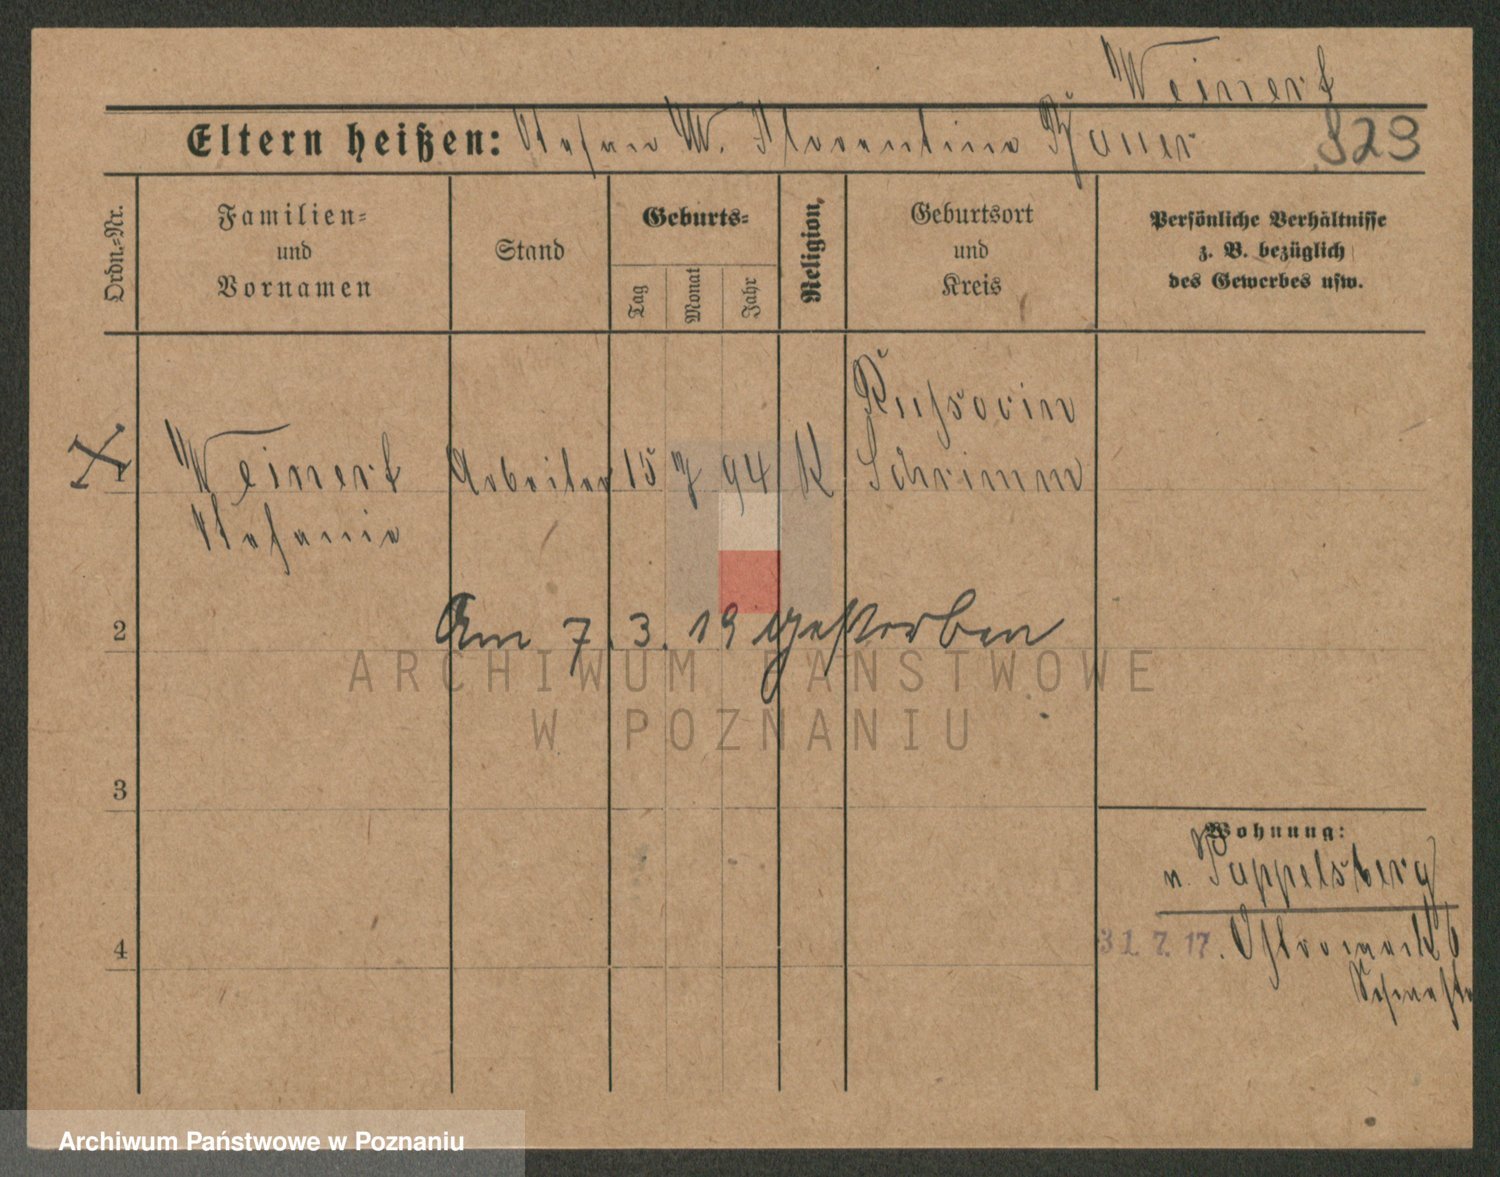 Weinert
Eltern heißen: Stefan W. Florentina 823
Ordn.-Nr.
Familien-
und
Vornamen
Stand
Geburts-
Tag
Monat
Jahr
Religion,
Geburtsort
und
Kreis
Persönliche Verhältnisse
z. B. bezüglich
des Gewerbes usw.
X
1
Weinert Arbeiter 15 7 94 K Schrimm
Stefanie
2
Am 7. 3. 19 gestorben
ARCHIWUM PAŃSTWOWE
W POZNANIU
3
Wohnung:
n. Pappelsberg
4
31. 7. 17. 6
Archiwum Państwowe w Poznaniu